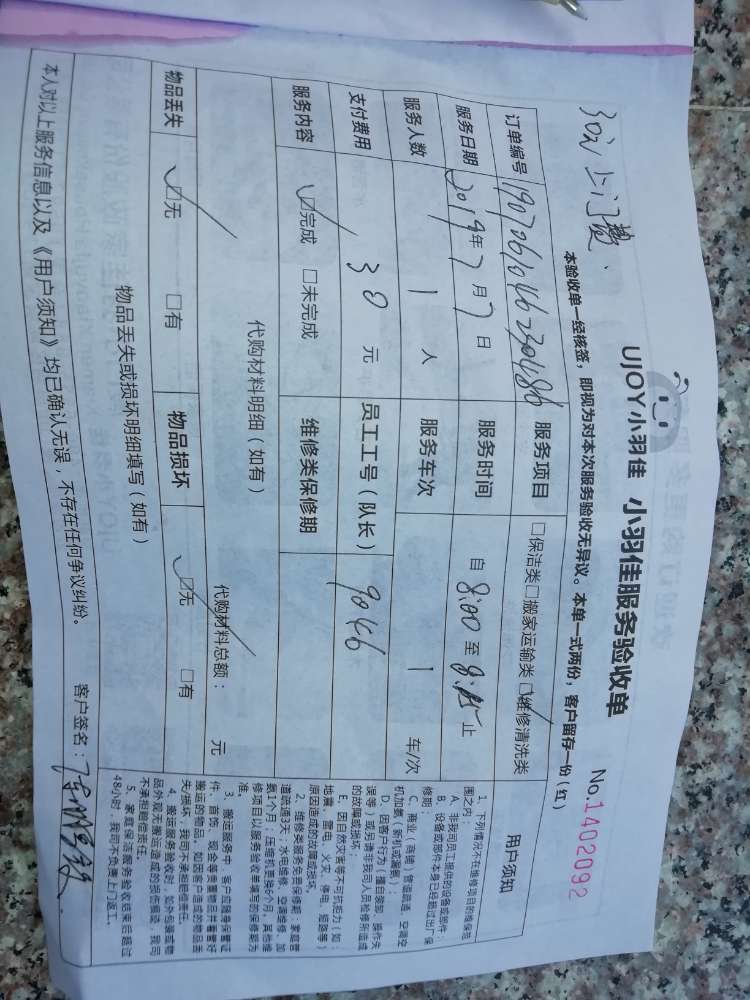 UJOY小羽佳 小羽佳服务验收单
No.1402092
30元上门费.
本验收单一经核签，即视为对本次服务验收无异议。本单一式两份，客户留存一份（红）
订单编号 服务项目 □保洁类□搬家运输类☑维修清洗类
服务日期 2019年7月7日 服务时间 自 8:00 至 止
服务人数 1 人 服务车次 1 车/次
支付费用 30 元 员工工号（队长） 9046
服务内容 ☑完成 □未完成 维修类保修期
代购材料明细（如有） 代购材料总额： 元
物品丢失 ☑无 □有 物品损坏 ☑无 □有
物品丢失或损坏明细填写（如有）
用户须知
1、下列情况不在维修项目的维保范
围之内：
A、非我司员工提供的设备或部件；
B、设备或部件本身已经超过出厂保
修期；
C、商业（商铺）管道疏通、空调空
机加氨（新机或漏氨）；
D、因客户行为（擅自装卸、操作失
误等）或另请非我司人员检修所造成
的故障或损坏；
E、因自然灾害等不可抗拒力（如：
地震、雷电、火灾、停电、短路等）
原因造成的故障或损坏。
2、维修类服务免费保修期：家庭管
道疏通3天，水电维修、空调维修、加
氨1个月；压缩机更换6个月，其他维
修项目以服务验收单填写的保修期为
准。
3、搬运服务中，客户应随身保管证
件、首饰、现金等贵重物品并看管好
搬运的物品，如因客户造成的物品丢
失/损坏，我司不承担赔偿责任。
4、搬运服务验收时，如外包装或物
品外观无搬运造成的损伤痕迹，我司
不承担赔偿责任。
5、家庭保洁服务验收结束后超过
48小时，我司不负责上门返工。
本人对以上服务信息以及《用户须知》均已确认无误，不存在任何争议纠纷。 客户签名：